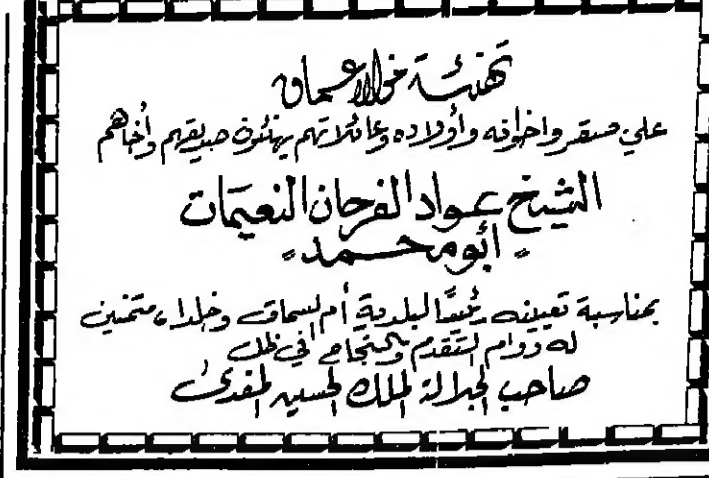 تهنئة من الاعماق
علي مسقر واخوانه وأولاده وعائلاتهم يهنئون صديقهم وأخاهم
الشيخ عواد الفرحان النعيمات
"أبو محمد"
بمناسبة تعيينه رئيسًا لبلدية أم السماق وخلدا، متمنين
له دوام التقدم والنجاح في ظل
صاحب الجلالة الملك الحسين المفدى